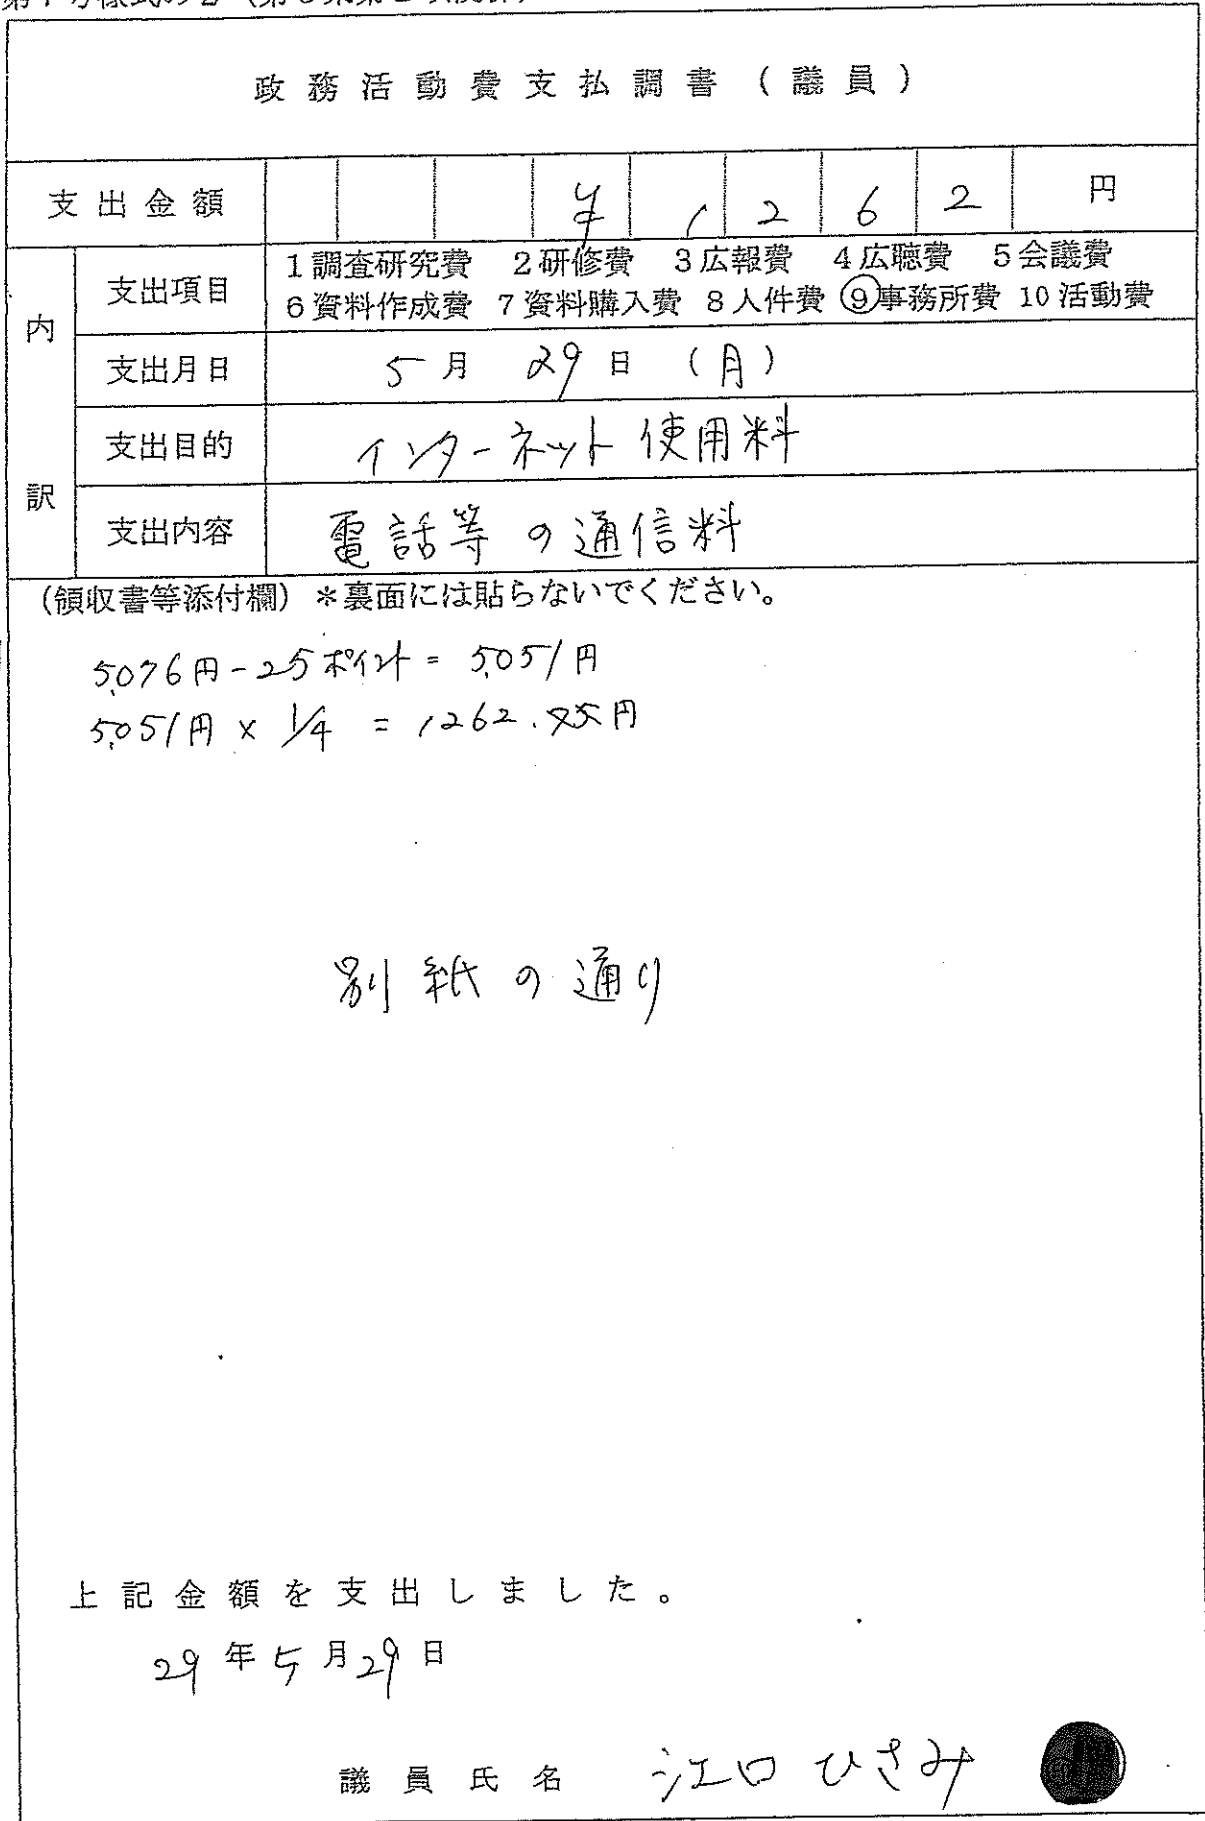 政務活動費支払調書（議員）
支出金額 ¥1,262 円
内訳
支出項目 1調査研究費 2研修費 3広報費 4広聴費 5会議費
6資料作成費 7資料購入費 8人件費 ⑨事務所費 10活動費
支出月日 5月 29日 (月)
支出目的 インターネット使用料
支出内容 電話等の通信料
(領収書等添付欄) *裏面には貼らないでください。
5,076円-25ポイント=5,051円
5,051円×1/4=1262.75円
別紙の通り
上記金額を支出しました。
29年5月29日
議員氏名 江口ひさみ